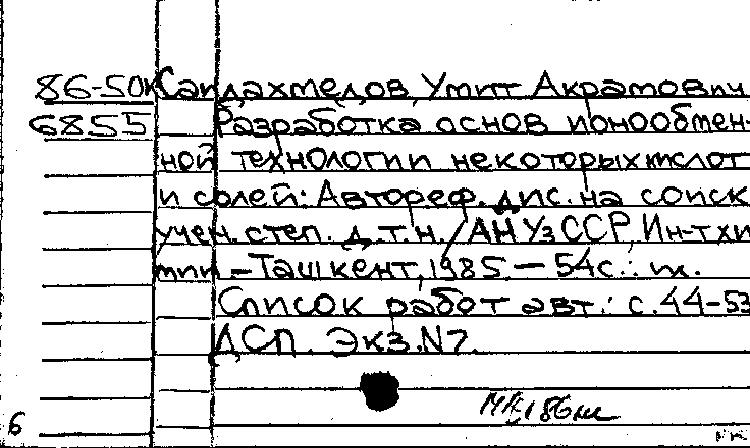 86-50к Саидахмедов, Умит Акрамович
6855 Разработка основ ионообмен-
ной технологии некоторых кислот
и солей: Автореф. дис. на соиск.
учен. степ. д.т.н. / АН УзССР, Ин-т хи
мии – Ташкент, 1985. – 54с.: ил.
Список работ авт.: с.44-53
ДСП. Экз.N7.
6